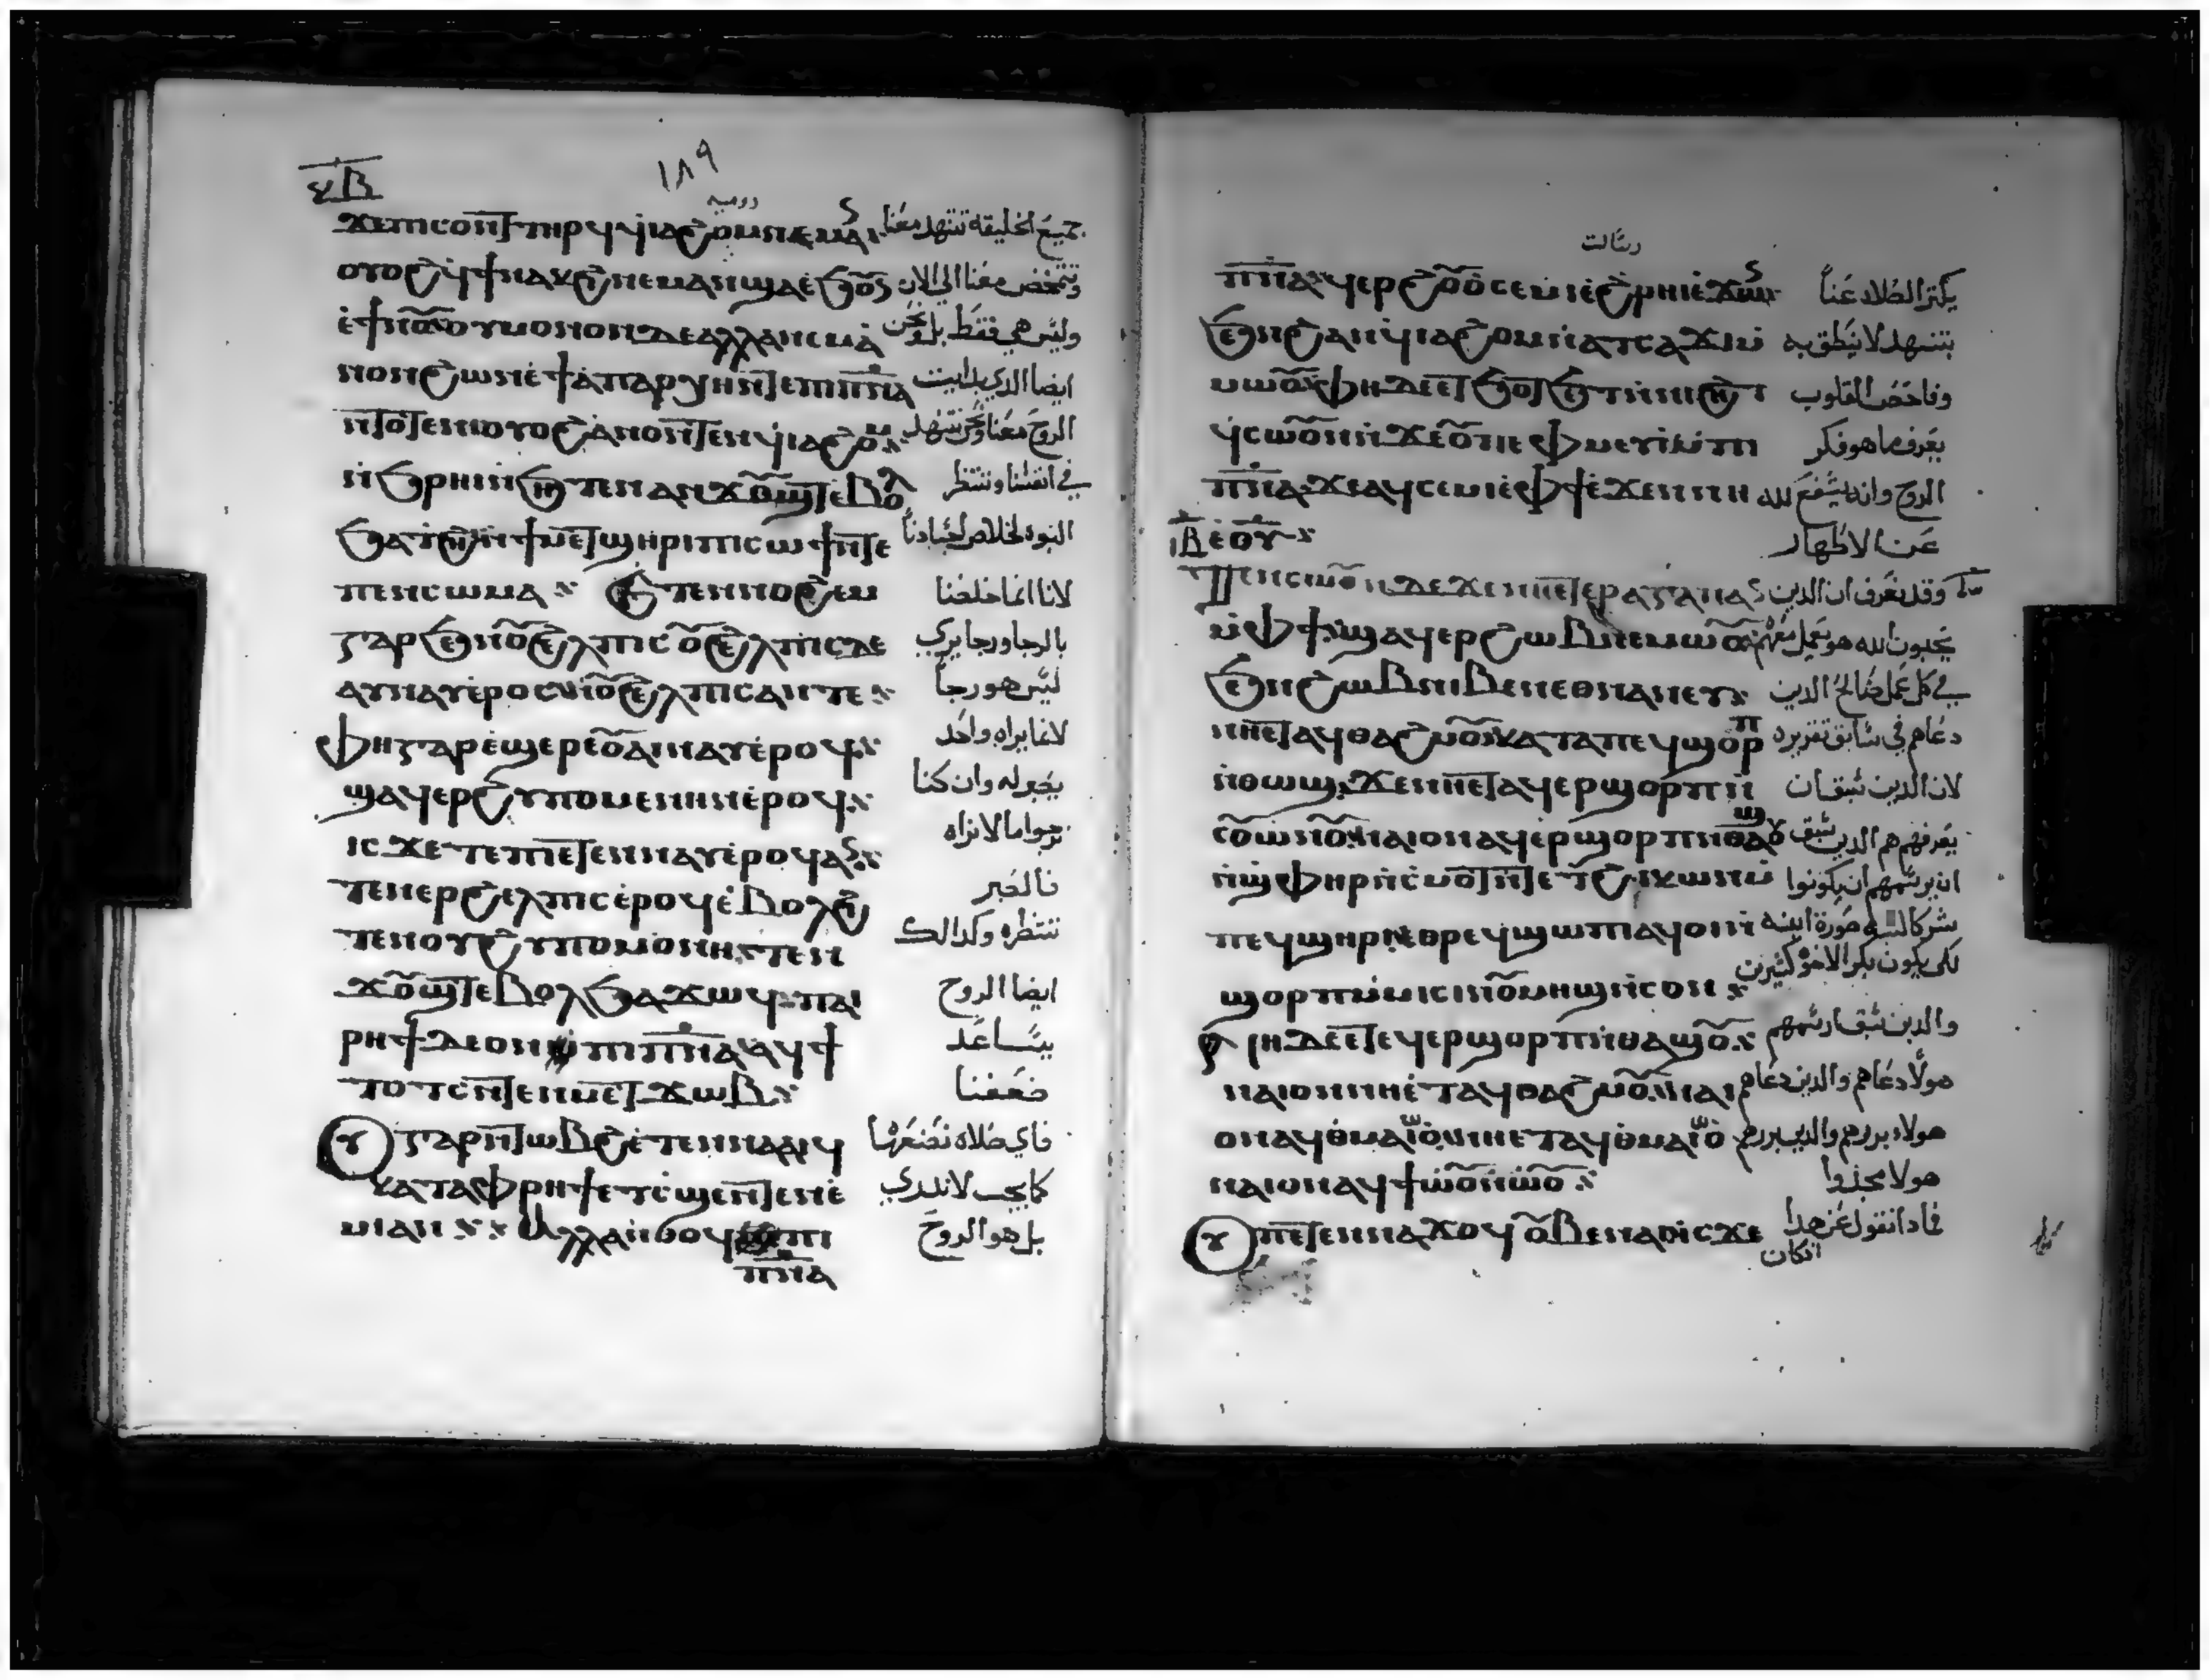 ⲝⲃ
١٨٩
رومية
ϫⲉⲡⲓⲥⲟⲛⲧ ⲧⲏⲣϥ ϥⲓⲁϩⲟⲙ ⲛⲉⲙⲁⲛ جميع الخليقه تتنهد معنا
ⲟⲩⲟϩ ϥϯⲛⲁⲕϩⲓ ⲛⲉⲙⲁⲛ ϣⲁ ⲉϧⲟⲩⲛ وتتمخض معنا الي الان
ⲉϯⲛⲟⲩ ⲟⲩⲙⲟⲛⲟⲛ ⲇⲉ ⲁⲗⲗⲁ ⲛⲉⲙ ⲁ وليس هي فقط بل ونحن
ⲛⲟⲛ ϩⲱⲛ ⲉϯⲁⲡⲁⲣⲭⲏ ⲛⲧⲉ ⲡⲓⲡⲛⲁ ايضا الدي بدايت
ⲛⲧⲟⲧⲉⲛ ⲟⲩⲟϩ ⲁⲛⲟⲛ ⲧⲉⲛϥⲓⲁϩⲟⲙ الروح معنا ونحن نتنهد
ⲛϧⲣⲏⲓ ⲛϧⲏⲧⲉⲛ ⲁⲛϫⲟⲩϣⲧ ⲉⲃⲟⲗ في انفسنا وننتظر
ϧⲁⲧϩⲏ ⲛϯⲙⲉⲧϣⲏⲣⲓ ⲡⲓⲥⲱϯ ⲛⲧⲉ البنوه لخلاص اجسادنا
ⲡⲉⲛⲥⲱⲙⲁ ⲉⲧⲁⲛⲛⲟϩⲉⲙ لانا انما خلصنا
ⲅⲁⲣ ϧⲉⲛ ⲟⲩϩⲉⲗⲡⲓⲥ ⲟⲩϩⲉⲗⲡⲓⲥ ⲇⲉ بالرجا ورجا يري
ⲁⲩⲛⲁⲩ ⲉⲣⲟⲥ ⲛⲟⲩϩⲉⲗⲡⲓⲥ ⲁⲛ ⲧⲉ ليس هو رجا
ⲫⲏ ⲅⲁⲣ ⲉϣⲁⲣⲉ ⲟⲩⲁⲓ ⲛⲁⲩ ⲉⲣⲟϥ لانما يراه واحد
ϣⲁϥⲉⲣϩⲩⲡⲟⲙⲉⲛⲓⲛ ⲉⲣⲟϥ يصبر له وان كنا
ⲓⲥϫⲉ ⲡⲉⲧⲉⲛⲧⲉⲛⲛⲁⲩ ⲉⲣⲟϥ ⲁⲛ نرجوا ما لا نراه
ⲧⲉⲛⲉⲣϩⲉⲗⲡⲓⲥ ⲉⲣⲟϥ ⲉⲃⲟⲗϩⲓ فالصبر
ⲧⲉⲛ ⲟⲩϩⲩⲡⲟⲙⲟⲛⲏ ⲧⲉⲛ ننتظره وكدالك
ϫⲟⲩϣⲧ ⲉⲃⲟⲗ ϧⲁϫⲱϥ ⲡⲁⲓ ايضا الروح
ⲣⲏϯ ⲇⲉ ⲟⲛ ⲡⲓⲡⲛⲁ ϥϯ يساعد
ⲧⲟⲧⲥ ⲛⲧⲉⲛⲙⲉⲧϫⲱⲃ ضعفنا
ⲟⲩ ⲅⲁⲣ ⲛⲧⲱⲃϩ ⲉⲧⲉⲛⲛⲁⲁⲓϥ فاي صلاه نصنعها
ⲕⲁⲧⲁ ⲫⲣⲏϯ ⲉⲧⲥϣⲉ ⲛⲧⲉⲛⲉ كما يجب لا ندري
ⲙⲓ ⲁⲛ ⲁⲗⲗⲁ ⲛⲑⲟϥ ⲡⲓ بل هو الروح
ⲡⲛⲁ
رسالت
ⲡⲛⲁ ϥⲉⲣϩⲟⲩⲟ ⲥⲉⲙⲓ ⲉϩⲣⲏⲓ ⲉϫⲱⲛ يكتر الصلاه عنا
ϧⲉⲛ ϩⲁⲛϥⲓⲁϩⲟⲙ ⲛⲁⲧⲥⲁϫⲓ ⲙ بتنهد لا ينطق به
ⲙⲱⲟⲩ ⲫⲏ ⲇⲉ ⲉⲧϧⲟⲧϧⲉⲧ ⲛⲛⲓϩⲏⲧ وفاحص القلوب
ϥⲥⲱⲟⲩⲛ ϫⲉ ⲟⲩ ⲡⲉ ⲫⲙⲉⲩⲓ ⲙⲡⲓ يعرف ما هو فكر
ⲡⲛⲁ ϫⲉ ⲁϥⲥⲉⲙⲓ ⲉⲫϯ ⲉϫⲉⲛ ⲛⲏ الروح وانه يشفع لله
ⲓⲃ ⲉⲑⲩ عن الاطهار
ⲧⲉⲛⲥⲱⲟⲩⲛ ⲇⲉ ϫⲉ ⲛⲏⲉⲧⲉⲣⲁⲅⲁⲡⲁⲛ وقد نعرف ان الدين
ⲙⲫϯ ϣⲁϥⲉⲣϩⲱⲃ ⲛⲉⲙⲱⲟⲩ يحبون الله هو يعمل معهم
ϧⲉⲛ ϩⲱⲃ ⲛⲓⲃⲉⲛ ⲉⲑⲛⲁⲛⲉⲩ في كل عمل صالح الدين
ⲛⲏⲉⲧⲁϥⲑⲁϩⲙⲟⲩ ⲕⲁⲧⲁ ⲡⲉϥϣⲟⲣⲡ دعاهم في سابق تقريره
ⲛⲑⲱϣ ϫⲉ ⲛⲏⲉⲧⲁϥⲉⲣϣⲟⲣⲡ ⲛ لان الدين سبق ان
ⲥⲟⲩⲱⲛⲟⲩ ⲛⲁⲓ ⲟⲛ ⲁϥⲉⲣϣⲟⲣⲡ ⲛⲑⲁϣⲟⲩ يعرفهم هم الدين سبق
ⲛϣⲫⲏⲣ ⲛⲥⲙⲟⲧ ⲛⲧⲉ ⲧϩⲓⲕⲱⲛ ⲙ ان يرسمهم ان يكونوا
ⲡⲉϥϣⲏⲣⲓ ⲉⲑⲣⲉϥϣⲱⲡⲓ ⲁϥⲟⲓ ⲛ صورة ابنه
ϣⲟⲣⲡ ⲙⲙⲓⲥⲓ ⲛⲟⲩⲙⲏϣ ⲛⲥⲟⲛ لكي يكون بكر الاخوه كثيرين
ⲫⲏ ⲇⲉ ⲉⲧⲉϥⲉⲣϣⲟⲣⲡ ⲛⲑⲁϣⲟⲩ والدين سبق رسمهم
ⲛⲁⲓ ⲟⲛ ⲛⲏ ⲉⲧⲁϥⲑⲁϩⲙⲟⲩ ⲛⲁⲓ هولا دعاهم والدين دعاهم
ⲟⲛ ⲁϥⲑⲙⲁⲓⲱⲟⲩ ⲛⲏ ⲉⲧⲁϥⲑⲙⲁⲓⲱⲟⲩ هولاء بررهم والدين بررهم
ⲛⲁⲓ ⲟⲛ ⲁϥϯⲱⲟⲩ ⲛⲱⲟⲩ هولا مجدوا
ⲟⲩ ⲡⲉⲧⲉⲛⲛⲁϫⲟϥ ⲟⲩⲃⲉ ⲛⲁⲓ ⲓⲥϫⲉ فمادا نقول عن هدا
انكان